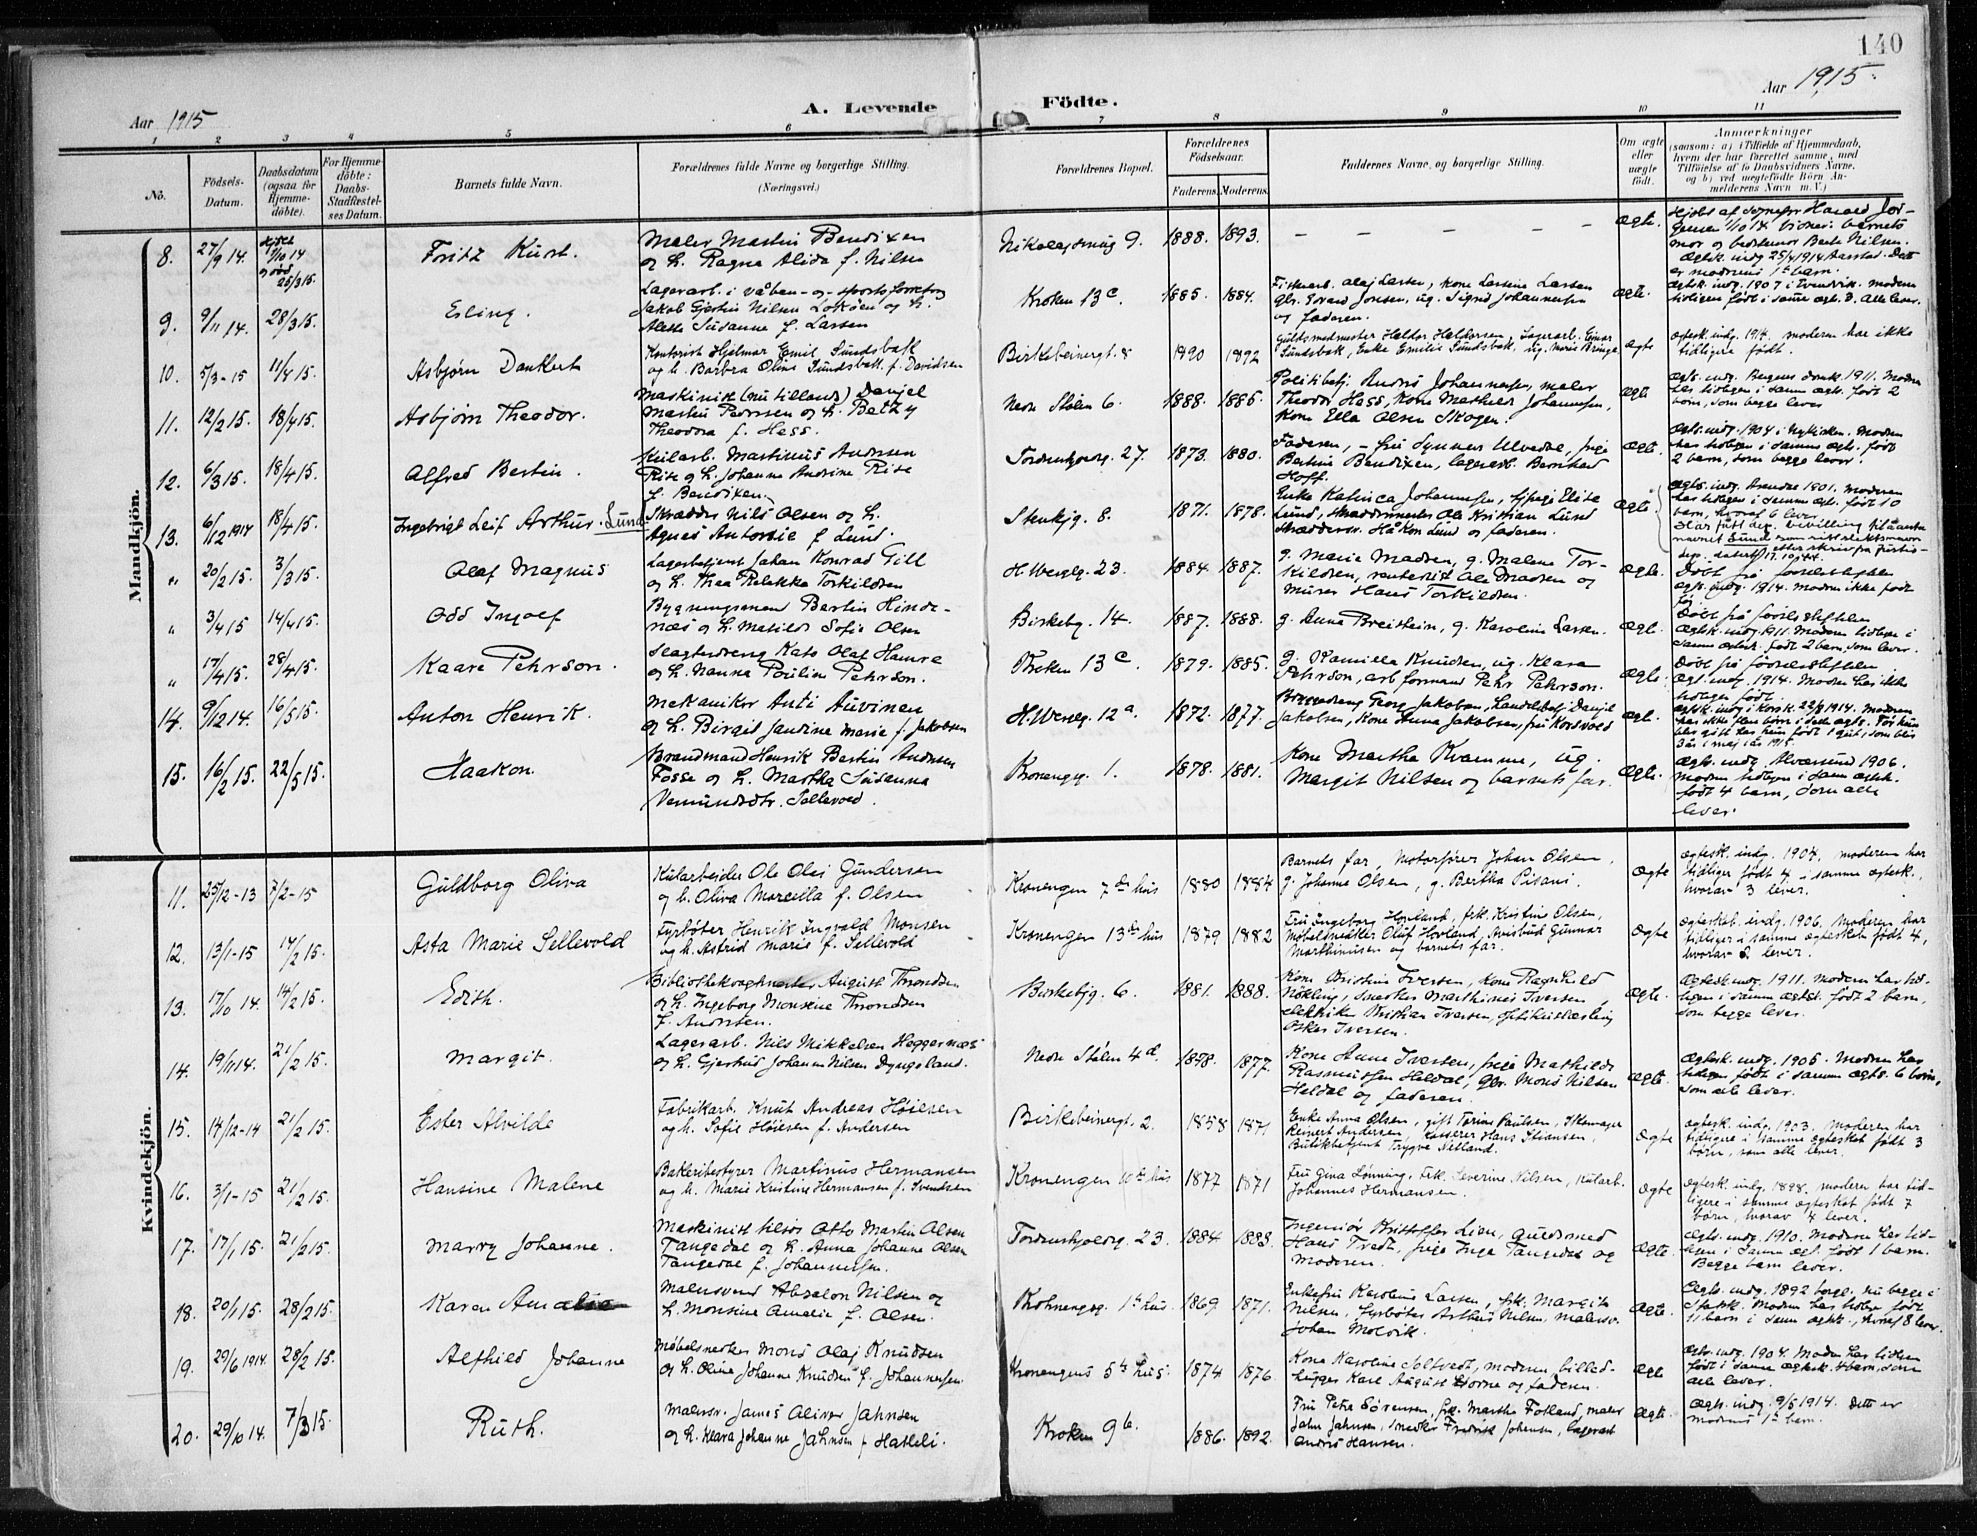 140
Aar 1915
A. Levende
Födte.
Aar 1915.
1 2 3 4 5 6 7 8 9 10 11
No.
Födsels-
Datum.
Daabsdatum
(ogsaa for
Hjemme-
döbte).
For Hjemme-
döbte:
Daabs-
Stadfæstel-
ses Datum.
Barnets fulde Navn.
Forældrenes fulde Navne og borgerlige Stilling.
(Næringsvei.)
Forældrenes Bopæl.
Forældrenes
Födselsaar.
Faderens. Moderens.
Faddernes Navne, og borgerlige Stilling.
Om ægte
eller
uægte
födt.
Anmærkninger
(saasom: a) i Tilfælde af Hjemmedaab,
hvem der har forrettet samme, med
Tilföielse af to Daabsvidners Navne,
og b) ved uægtefödte Börn An-
melderens Navn m. V.)
Mandkjön.
8. 27/9 14.
25/3 15.
Fritz Kurt.
Maler Martin Bendixen
og h. Ragna Alida f. Nilsen
Nikolaysmug 9. 1888. 1893.
— — — — —
ægte.
mor og bedstemor Berte Nilsen.
er moderens 1ste barn.
9. 9/11 14. 28/3 15.
Erling.
Lagerarb. i våben- og sportsforretng
Alette Susanne f. Larsen
Kroken 13c. 1885. 1884.
og faderen.
ægte.
10. 5/3-15 11/4 15.
Asbjørn Dankert
Kontorist Hjelmar Emil Sundsbakk
og h. Barbra Oline Sundsbakk f. Davidsen
Birkebeinergt. 8 1890 1892
Guldsmedmester Haldor Haldorsen, Lagerarb. Einar
Sundsbak, Enke Emilie Sundsbak, ug. Marie Bringe
ægte
ægtesk. indg. 1914. moderen har ikke
tidligere født.
11. 12/2 15. 18/4 15.
Asbjørn Theodor.
Maskinist (nu tillands) Danjel
Martin Pedersen og h. Betzy
Theodora f. Hess.
Nedre Stølen 6. 1888. 1885.
Politibetj. Andrés Johannessen, maler
Theodor Hess, kone Mathilde Johannessen,
Kone Ella Olsen Skogen.
ægte
ægts. indg. Bergens domk. 1911. Modren
har tidligen i samme ægts. født 2
barn, som begge lever
12. 6/3 15. 18/4 15.
Alfred Bertin.
Kularb. Martinus Andersen
Rise og h. Johanne Andrine Rise
f. Bendixen.
Tordenskjoldg. 27. 1873. 1880.
Faderen, – fru Synneve Ulvedal, frøk.
Bertine Bendixen, lagerarb. Bernhard
Hoff.
ægte.
2 barn, som begge lever.
13. 6/12 1914 18/4 15.
Ingebrigt Leif Arthur. Lund.
Skrædder Nils Olsen og h.
Agnes Antonie f. Lund.
Stenkjg. 8. 1871. 1878.
Enke Katinca Johannessen,
Lund, skræddermester Ole Kristian Lund
skræddersv. Håkon Lund og faderen.
ægte.
barn, hvoraf 6 lever.
" 20/2 15. 3/3 15.
Olaf Magnus
Lagerbetjent Johan Konrad Gill
og h. Thea Rebekka Torkildsen
H. Wergelg. 23. 1884. 1887.
g. Marie Madsen, g. Malene Tor-
kildsen, rentenist Ole Madsen og
murer Hans Torkildsen.
ægte.
Døbt på fødselsstiftelsen
ægts. indg. 1914. Modren ikke født
før
" 3/4 15 14/4 15.
Odd Ingolf
Bygningsmand Bertin Hinde-
næs og h. Matilde Sofie Olsen
Birkebg. 14. 1887. 1888.
g. Anna Breistein, g. Karoline Larsen.
ægte.
Døbt på fødselsstiftelsen
ægtsk. indg. 1911. Modren tidligere i
samme ægtesk. født 2 barn, som lever.
" 17/4 15. 28/4 15.
Kaare Pehrson.
Slagterdreng Kato Olaf Hamre
og h. Nanna Pauline Pehrson.
Kroken 13c. 1879. 1885.
g. Kamilla Knudsen, ug. Klara
Pehrson, arb. formand Pehr Pehrson.
ægte.
Døbt på fødselsstiftelsen
ægt. indg. 1914. Modren har ikke
tidligere født.
14. 9/12 14. 16/5 15.
Anton Henrik.
Mekaniker Anti Auvinen
og h. Birgit Jandine Marie f. Jakobsen
H. Wergelg. 12a. 1872. 1877.
Jakobsen, Kone Anna Jakobsen, fru Korsvold
ægte.
15. 16/2 15. 22/5 15.
Haakon.
Brandmand Henrik Bertin Andersen
Fosse og h. Martha Susanna
Vemundsdtr. Sellevold.
Kronengg. 1. 1878. 1881.
Kone Martha Kvamme, ug.
Margit Nilsen og barnets far.
ægte.
ægts. indg. Alversund 1906.
Modren tidligen i samme ægtsk.
født 4 barn, som alle
lever.
Kvindekjön.
11. 25/12-13 7/2-15
Guldborg Oliva
Kularbeider Ole Olai Gundersen
og h. Oliva Marcella f. Olsen
Kronengen 7de hus 1880 1884
Barnets far, Motorfører Johan Olsen,
g. Johanne Olsen, g. Bertha Pisani.
ægte
ægtesk. indg. 1904, moderen har
tidligere født 4 i samme ægtesk.,
hvorav 3 lever.
12. 13/1-15 14/2 15.
Asta Marie Sellevold
Fyrbøter Henrik Ingvald Monsen
og h. Astrid Marie f. Sellevold
Kronengen 13de hus 1879 1882
Fru Ingeborg Hovland, frk. Kristine Olsen,
Møbelsnekker Oluf Hovland, Avisbud Gunnar
Marthinussen og barnets far.
ægte
ægteskab indg. 1906, Moderen har
tidligere i samme ægteskab født 4,
hvorav 2 lever.
13. 17/10 14. 14/2 15.
Edith.
August Throndsen
og h. Ingeborg Monsine Throndsen
f. Andersen.
Birkebjg. 6. 1881. 1888.
Kone Kristine Iversen, kone Ragnhild
Nøkling, snedker Marthinus Iversen,
elektriker Kristian Iversen, optikerlærling
Oskar Iversen.
ægte.
ægtesk. indg. 1911. Modren har tid-
ligen i samme ægtsk. født 2 barn,
som begge lever.
14. 19/11 14. 21/2 15.
Margit.
Lagerarb. Nils Mikkelsen Heggernæs
og h. Gjertrud Johanne Nilsen Dyngeland.
Nedre Stølen 4d. 1878. 1877.
Kone Anna Iversen, frøk. Mathilde
Rasmussen Heldal, gbr. Mons Nilsen
Heldal og faderen.
ægte.
ægtesk. indg. 1905. Modren har
tidligen født i samme ægts. 6 børn,
som alle lever.
15. 14/12-14 21/2 15.
Ester Alvilde
Fabrikarb. Knut Andreas Høiesen
og h. Sofie Høiesen f. Andersen
Birkebeinergt. 2. 1858 1871
Enke Anna Olsen, gift Torine Paulsen, Skomager
Reinert Andersen, Kasserer Hans Stiansen,
Butikbetjent Trygve Silland.
ægte
ægtesk. indg. 1903. moderen har
tidligere i samme ægteskab født 3
børn, som alle lever.
16. 3/1-15 21/2 15.
Hansine Malene
Bakeribestyrer Martinus Hermansen
og h. Marie Kristine Hermansen f. Svendsen
Kronengen 10de hus 1877 1871
Fru Gina Lønning, Frk. Severine Nilsen, Kularb.
Johannes Hermansen.
ægte
ægtesk. indg. 1898, moderen har tid-
ligere i samme ægteskab født 7
børn, hvorav 4 lever.
17. 17/1 15. 21/2 15.
Marry Johanne.
Maskinist tilsøs Otto Martin Olsen
Tangedal og h. Anna Johanne Olsen
Tangedal f. Johannessen.
Tordenskjoldg. 23. 1884 1888.
Ingeniør Kristoffer Lien, Guldsmed
Hans Tvedt, frøk. Inga Tangedal og
Moderen.
ægte.
ægts. indg. 1910. Modren har tid-
ligen i samme ægt. født 1 barn.
Begge barn lever.
18. 20/1 15. 28/2 15.
Karen Amalie
Malersvend Absalon Nilsen og
h. Monsine Amalie f. Olsen.
Krohnengg. 1ste hus. 1869. 1871.
Enkefru Karoline Larsen, frk. Margit
Nilsen, fyrbøter Arthur Nilsen, malersv.
Johan Molvik.
ægte.
11 barn i samme ægtsk., hvoraf 8 lever.
19. 29/6 1914. 28/2 15.
Alfhild Johanne
Møbelsnedker Mons Olaj Knudsen
og h. Oline Johanne Knudsen f. Johannessen.
Kronengens 5te hus. 1874 1876.
Kone Karoline Soltvedt, moderen, billed-
hugger Karl August Horne og faderen.
ægte
ægts. indg. 1904. Modren har tidligen
født i samme ægtesk. 4 barn, som
alle lever.
20. 29/10 14. 7/3 15.
Ruth.
Malersv. James Oliver Jahnsen
og h. Klara Johanne Jahnsen f. Hatleli.
Kroken 9b. 1886. 1892.
Fru Petra Sørensen, frk. Martha Fotland, maler
John Jahnsen, smedkr Fredrik Johansen, lagerarb
Andrés Hansen.
ægte.
ægts. indg. 9/5 1914. Dette er
modrens 1ste barn.